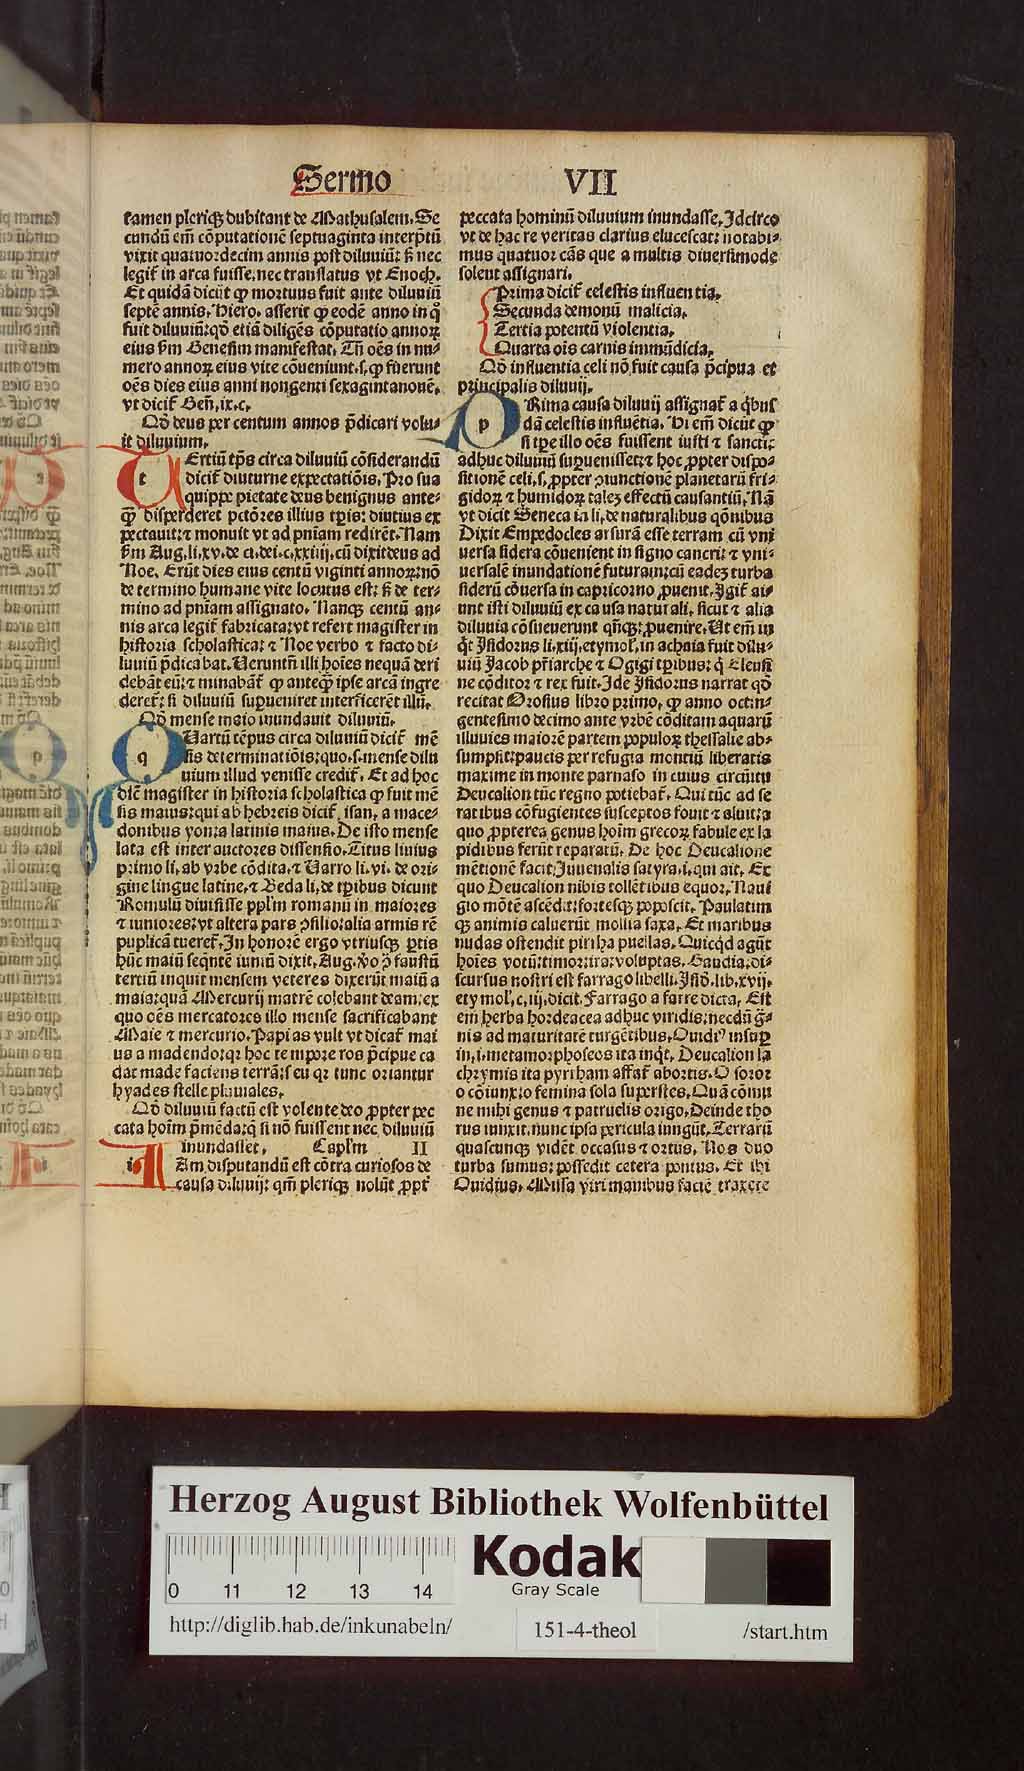 Sermo VII
tamen pleriqꝫ dubitant de Mathusalem. Se
cundū em̄ cōputationē septuaginta interp̄tū
vixit quatuordecim annis post diluuiū: sꝫ nec
legit̄ in arca fuisse, nec translatus vt Enoch.
Et quidā dicūt ꝙ mortuus fuit ante diluuiū
septē annis. Hiero. asserit ꝙ eodē anno in q̊
fuit diluuiū: qd̓ etiā diligēs cōputatio annoꝝ
eius ẜm Genesim manifestat. Tn̄ oēs in nu-
mero annoꝝ eius vite cōueniunt. s. ꝙ fuerunt
oēs dies eius anni nongenti sexagintanouē.
vt dicit̄ Geñ. ix. c.
Qd̓ deus per centum annos p̄dicari volu-
it diluuium.
t
Ertiū tp̄s circa diluuiū cōsiderandū
dicit̄ diuturne expectatiōis. Pro sua
quippe pietate deus benignus ante-
qꝫ̄ disperderet pctōres illius tp̄is: diutius ex
pectauit: ⁊ monuit vt ad pn̄iam redirēt. Nam
ẜm Aug. li. xv. de ci. dei. c. xxiiij. cū dixit deus ad
Noe. Erūt dies eius centū viginti annoꝝ: nō
de termino humane vite locutus est: sꝫ de ter-
mino ad pn̄iam assignato. Nanqꝫ centū an-
nis arca legit̄ fabricata: vt refert magister in
historia scholastica: ⁊ Noe verbo ⁊ facto di-
luuiū p̄dicabat. Veruntn̄ illi hoīes nequā deri
debāt eū: ⁊ minabāt̄ ꝙ anteqꝫ̄ ipse arcā ingre
deret̄: si diluuiū suꝑueniret interficerēt illū.
Qd̓ mense maio inundauit diluuiū.
q
Uartū tēpus circa diluuiū dicit̄ mē
sis determinatiōis: quo. s. mense dilu
uium illud venisse credit̄. Et ad hoc
dic̄ magister in historia scholastica ꝙ fuit mē
sis maius: qui ab hebreis dicit̄ isan, a mace-
donibus yon: a latinis maius. De isto mense
lata est inter auctores dissensio. Titus liuius
primo li. ab vrbe cōdita. ⁊ Varro li. vi. de ori-
gine lingue latine. ⁊ Beda li. de tp̄ibus dicunt
Romulū diuisisse ppl̓m romanū in maiores
⁊ iuniores: vt altera pars ꝯsilio: alia armis rē
puplicā tueret̄. In honorē ergo vtriusqꝫ ꝑtis
hūc maiū seqn̄tē iuniū dixit. Aug. ꝯ̓ faustū
tertiū inquit mensem veteres dixerūt maiū a
maia: quā Mercurij matrē colebant deam: ex
quo oēs mercatores illo mense sacrificabant
Maie ⁊ mercurio. Papias vult vt dicat̄ mai
us a madendo: qꝛ hoc tempore ros p̄cipue ca
dat madefaciens terrā: seu qꝛ tunc oriantur
hyades stelle pluuiales.
Qd̓ diluuiū factū est volente deo ꝓpter pec
cata hoīm p̄mēda: qꝛ si nō fuissent nec diluuiū
inundasset. Capl̓m II
i
Am disputandū est cōtra curiosos de
causa diluuij: qm̄ pleriqꝫ nolūt ꝓpt̄
peccata hominū diluuium inundasse. Idcirco
vt de hac re veritas clarius elucescat: notabi-
mus quatuor cās que a multis diuersimode
solent assignari.
Prima dicit̄ celestis influentia.
Secunda demonū malicia.
Tertia potentū violentia.
Quarta oīs carnis immūdicia.
Qd̓ influentia celi nō fuit causa p̄cipua et
principalis diluuij.
p
Rima causa diluuij assignat̄ a qͥbus
dā celestis influētia. Ui em̄ dicūt ꝙ
si tp̄e illo oēs fuissent iusti ⁊ sancti:
adhuc diluuiū suꝑuenisset: ⁊ hoc ꝓpter dispo-
sitionē celi. s. ꝓpter ꝯiunctionē planetarū fri-
gidoꝝ ⁊ humidoꝝ talem effectū causantiū. Nā
vt dicit Seneca in li. de naturalibus qōnibus
Dixit Empedocles arsurā esse terram cū vni
uersa sidera cōuenient in signo cancri: ⁊ vni-
uersalē inundationē futuram: cū eadeꝫ turba
siderū cōuersa in capricorno ꝓuenit. Igit̄ ai-
unt isti diluuiū ex causa naturali, sicut ⁊ alia
diluuia cōsueuerunt qn̄qꝫ ꝓuenire. Ut em̄ in
qͥt Isidorus li. xiij. etymol̓. in achaia fuit dilu-
uiū Jacob pr̄iarche ⁊ Ogigi tp̄ibus: qͥ Eleusi
ne cōditor ⁊ rex fuit. Ide Isidorus narrat qd̓
recitat Orosius libro primo, ꝙ anno octin-
gentesimo decimo ante vrbē cōditam aquarū
illuuies maiorē partem populoꝝ thessalie ab-
sumpsit: paucis per refugia montiū liberatis
maxime in monte parnaso in cuius circūitu
Deucalion tūc regno potiebat̄. Qui tūc ad se
ratibus cōfugientes susceptos fouit ⁊ aluit: a
quo ꝓpterea genus hoīm grecoꝝ fabule ex la
pidibus ferūt reparatū. De hoc Deucalione
mētionē facit Juuenalis satyra. i. qui ait. Ex
quo Deucalion nibis tollētibus equor. Naui
gio mōtē ascēdit: sortesqꝫ poposcit. Paulatim
qꝫ animis caluerūt mollia saxa. Et maribus
nudas ostendit pirrha puellas. Quicqͥd agūt
hoīes votū: timor: ira: voluptas. Gaudia: di-
scursus nostri est farrago libelli. Isid̓. lib. xvij.
etymol̓. c. iij. dicit. Farrago a farre dicta. Est
em̄ herba hordeacea adhuc viridis: necdū g̊-
nis ad maturitatē turgētibus. Ouidiꝰ insuꝑ
in. i. metamorphoseos ita inqͥt. Deucalion la
chrymis ita pyrrham affat̄ abortis. O soror
o cōiunx: o femina sola superstes. Quā cōmu
ne mihi genus ⁊ patruelis origo. Deinde tho
rus iunxit. nunc ipsa pericula iungūt. Terrarū
quascunqꝫ vidēt occasus ⁊ ortus. Nos duo
turba sumus: possedit cetera pontus. Et ibi
Ouidius. Missa viri manibus faciē traxere
Herzog August Bibliothek Wolfenbüttel
0 11 12 13 14
Kodak
Gray Scale
http://diglib.hab.de/inkunabeln/ 151-4-theol /start.htm